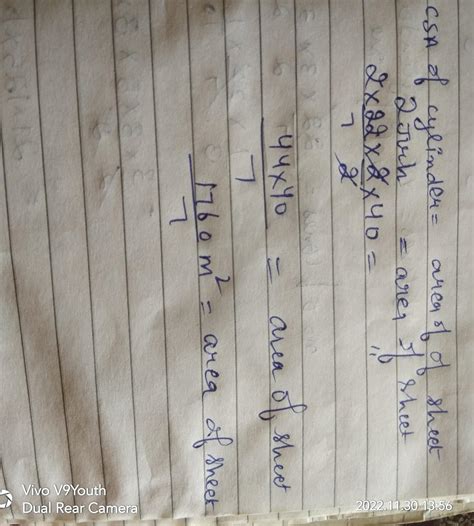 CSA of cylinder = area of sheet
2πrh = area of sheet
2 x 22 x 2 x 40 = "
7 2
44x40 = area of sheet
7
1760 m² = area of sheet
7
Vivo V9Youth
Dual Rear Camera
2022.11.30 13:56